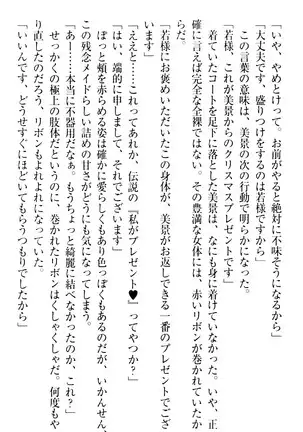 「いや、やめとけって。お前がやると絶対に不味そうになるから」
「大丈夫です。盛りつけをするのは若様ですから」
この言葉の意味は、美景の次の行動で明らかになった。
「若様、これが美景からのクリスマスプレゼントです」
言ってコートを足下に落とした美景は、なにも着ていなかった。正
確に言えば完全な全裸ではない。その豊満な女体には、赤いリボンが巻かれていたか
らだ。
「若様にお褒めいただいたこの身体が、美景がお返しできる一番のプレゼントでござ
います」
「ええと……これってあれか、伝説の『私がプレゼント♥』ってやつか?」
「はい、端的に申しまして、それでございます」
ぽっと頬を赤らめる姿は確かに愛らしくもあり色っぽくもあるのだが、いかんせん、
この残念メイドらしい詰めの甘さがどうにも気になってしまう。
「あー……本当に不器用だなぁ。もうちょっと綺麗に結べなかったのか、これ?」
せっかくの極上の肢体だというのに、巻かれたリボンはくしゃくしゃだ。何度もや
り直したのだろう、リボンもよれよれになっていた。
「いいんです、どうせすぐにほどいてもらうつもりでしたから」